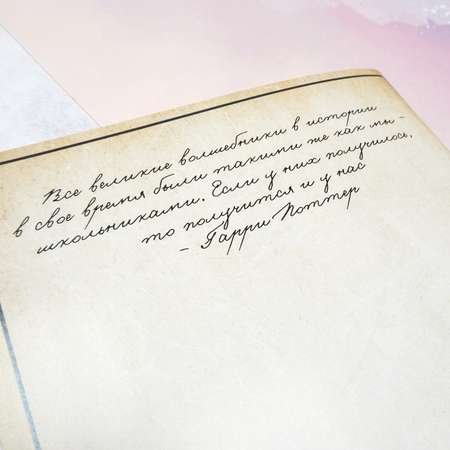 Все великие волшебники в истории
в свое время были такими же как мы -
школьниками. Если у них получилось,
то получится и у нас
- Гарри Поттер